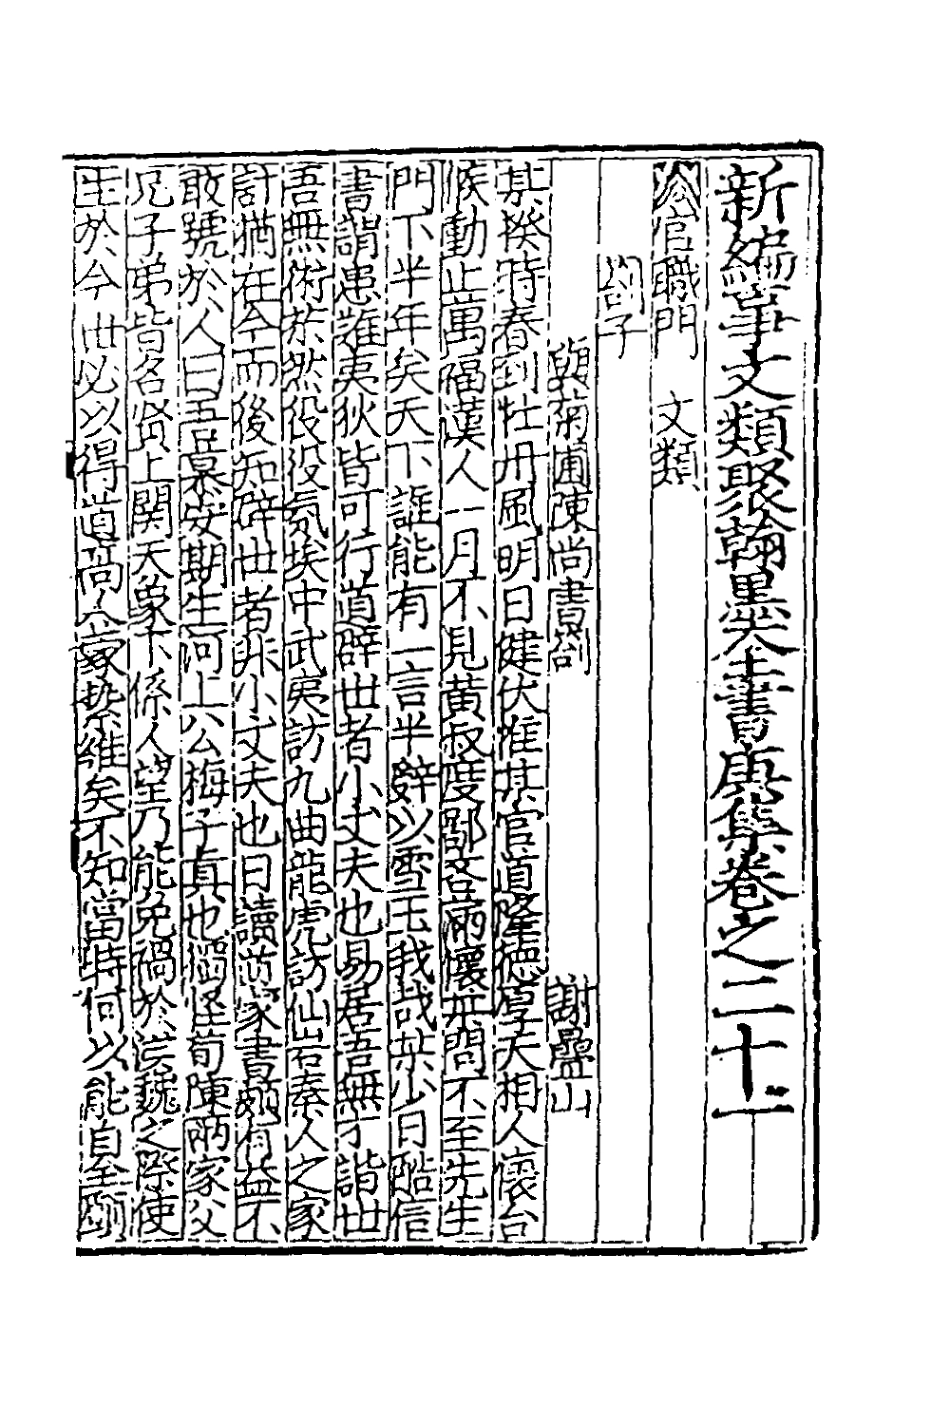 新編事文類聚翰墨全書庚集卷之二十一
官職門　文類
劄子
與菊圃陳尚書劄　謝疊山
某揆時春到牡丹風明日健伏惟某官道隆德厚天相人懷台
候動止萬福漢人一月不見黃叔度鄙吝兩懷某問不至先生
門下半年矣天下誰能有一言半辭以雪玉我哉某少日酷信
書謂患難夷狄皆可行道辟世者小丈夫也易居吾無才諧世
吾無術於然役役氛埃中武夷訪九曲龍虎訪仙岩秦人之家
計猶在今而後知辟世者非小丈夫也日讀故家書頗有益不
敢號於人曰吾慕安期生河上公梅子真也獨怪荀陳兩家父
兄子弟皆名賢上関天象下係人望乃能免禍於漢魏之際使
生於今世必以得道高人豪縶維矣不知當時何以能自全